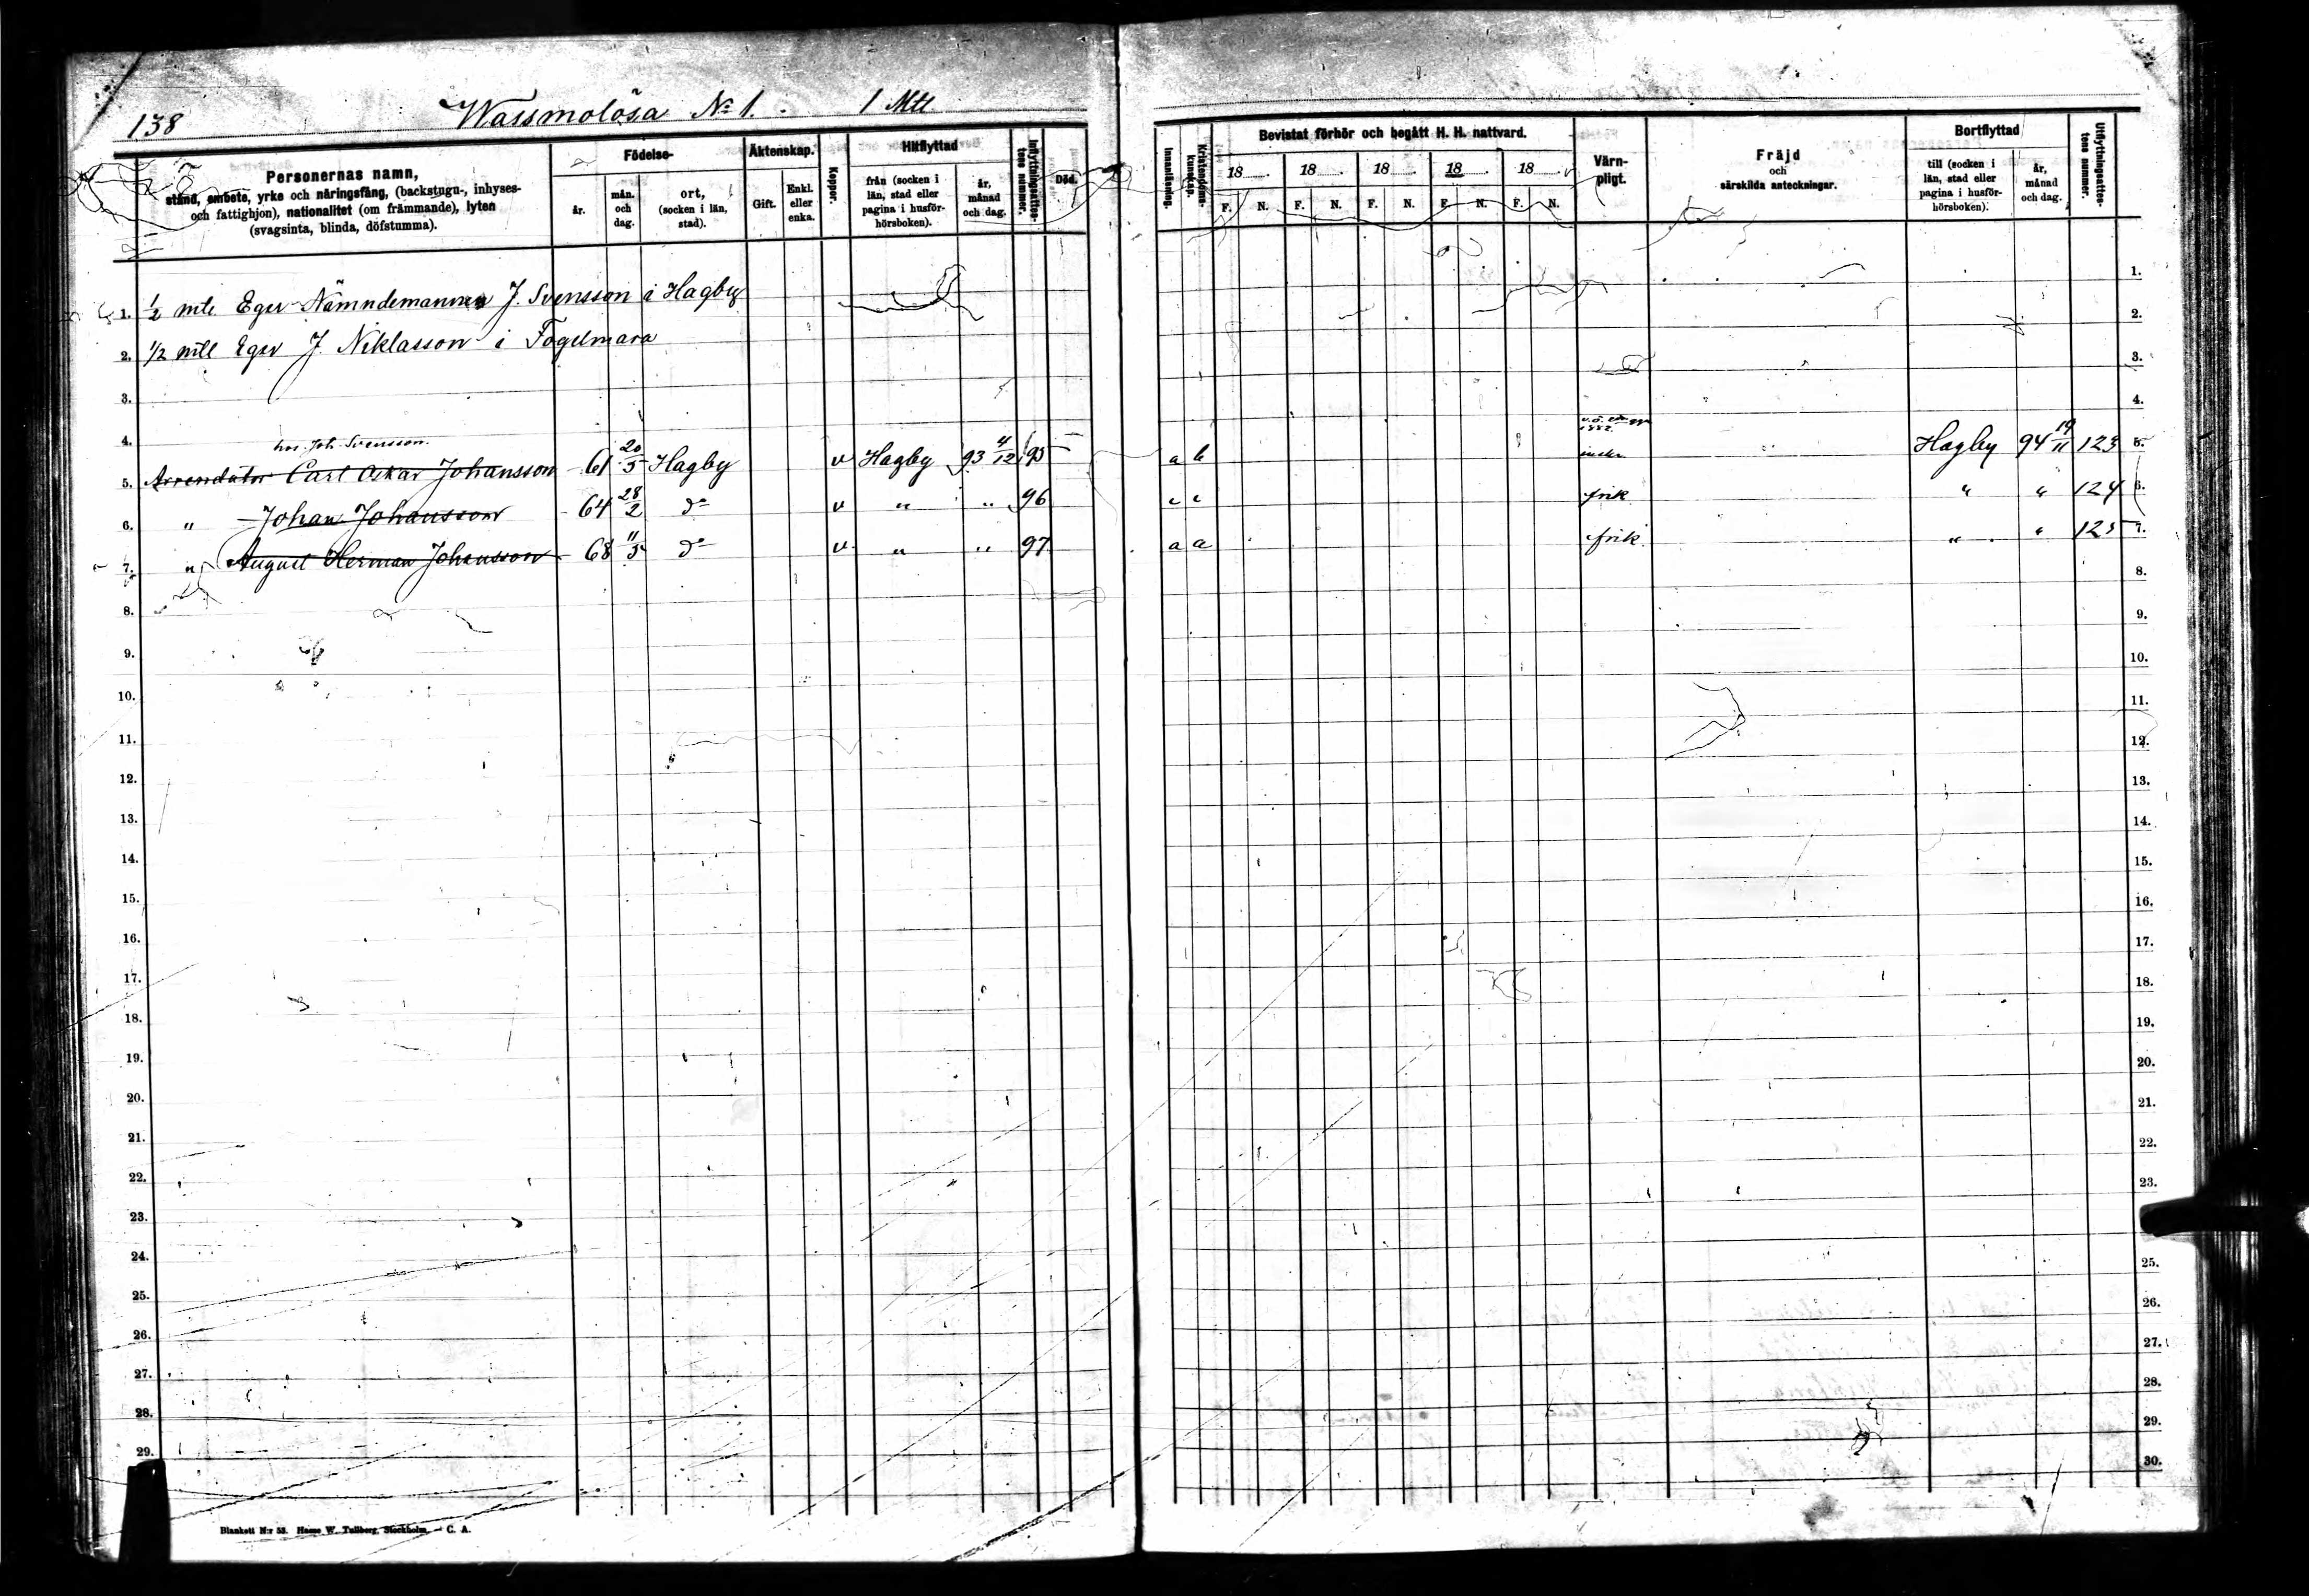 138 Wassmolösa No 1. 1 Mtl
Personernas namn,
stånd, embete, yrke och näringsfång, (backstugu-, inhyses-
och fattighjon), nationalitet (om främmande), lyten
(svagsinta, blinda, döfstumma).
Födelse-
år.
mån.
och
dag.
ort,
(socken i län,
stad).
Äktenskap.
Gift.
Enkl.
eller
enka.
Koppor.
Hitflyttad
från (socken i
län, stad eller
pagina i husför-
hörsboken).
år,
månad
och dag.
Inflyttningsattes-
tens nummer.
Död.
Innanläsning.
Kristendoms-
kunskap.
Bevistat förhör och begått H. H. nattvard.
18 18 18 18 18
F. N. F. N. F. N. F. N. F. N.
Värn-
pligt.
Fräjd
och
särskilda anteckningar.
Bortflyttad
till (socken i
län, stad eller
pagina i husför-
hörsboken).
år,
månad
och dag.
Utflyttningsattes-
tens nummer.
1.
1. 1/2 mtl Eger Nämndemannen J. Svensson i Hagby 2.
2. 1/2 mtl Eger J. Niklasson i Fogelmara 3.
3. 4.
4. hos Joh. Svensson.
5. Arrendator Carl Oskar Johansson 61 20/5 Hagby v Hagby 93 4/12 95 a b Hagby 94 19/11 123 5.
6. " Johan Johansson 64 28/2 do v " " 96 c c frik " " 124 6.
7. " August Herman Johansson 68 11/5 do v " " 97 a a frik. " " 125 7.
8.
8. 9.
9. 10.
10. 11.
11. 12.
12. 13.
13. 14.
14. 15.
15. 16.
16. 17.
17. 18.
18. 19.
19. 20.
20. 21.
21. 22.
22. 23.
23.
24. 25.
25. 26.
26. 27.
27. 28.
28. 29.
29. 30.
Blankett N:r 53. Hasse W. Tullberg, Stockholm. — C. A.